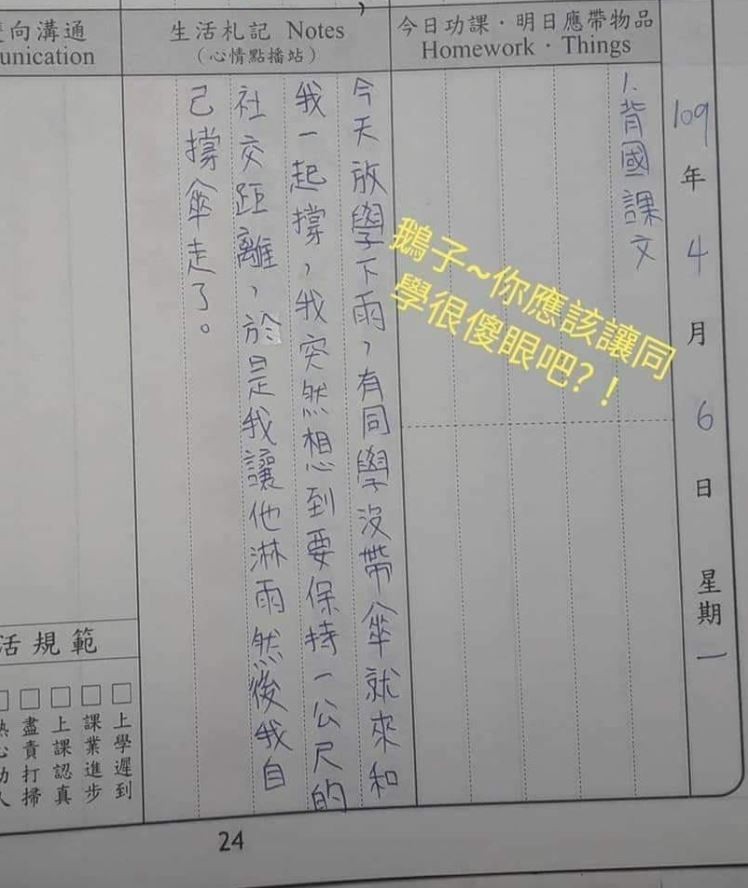 109年4月6日星期一
今日功課·明日應帶物品
Homework · Things
1.背國課文
生活札記 Notes
（心情點播站）
今天放學下雨，有同學沒帶傘就來和
我一起撐，我突然想到要保持一公尺的
社交距離，於是我讓他淋雨然後我自
己撐傘走了。
鵝子~你應該讓同
學很傻眼吧?！
向溝通
unication
活規範
□上學遲到
□課業進步
□上課認真
□盡責打掃
24